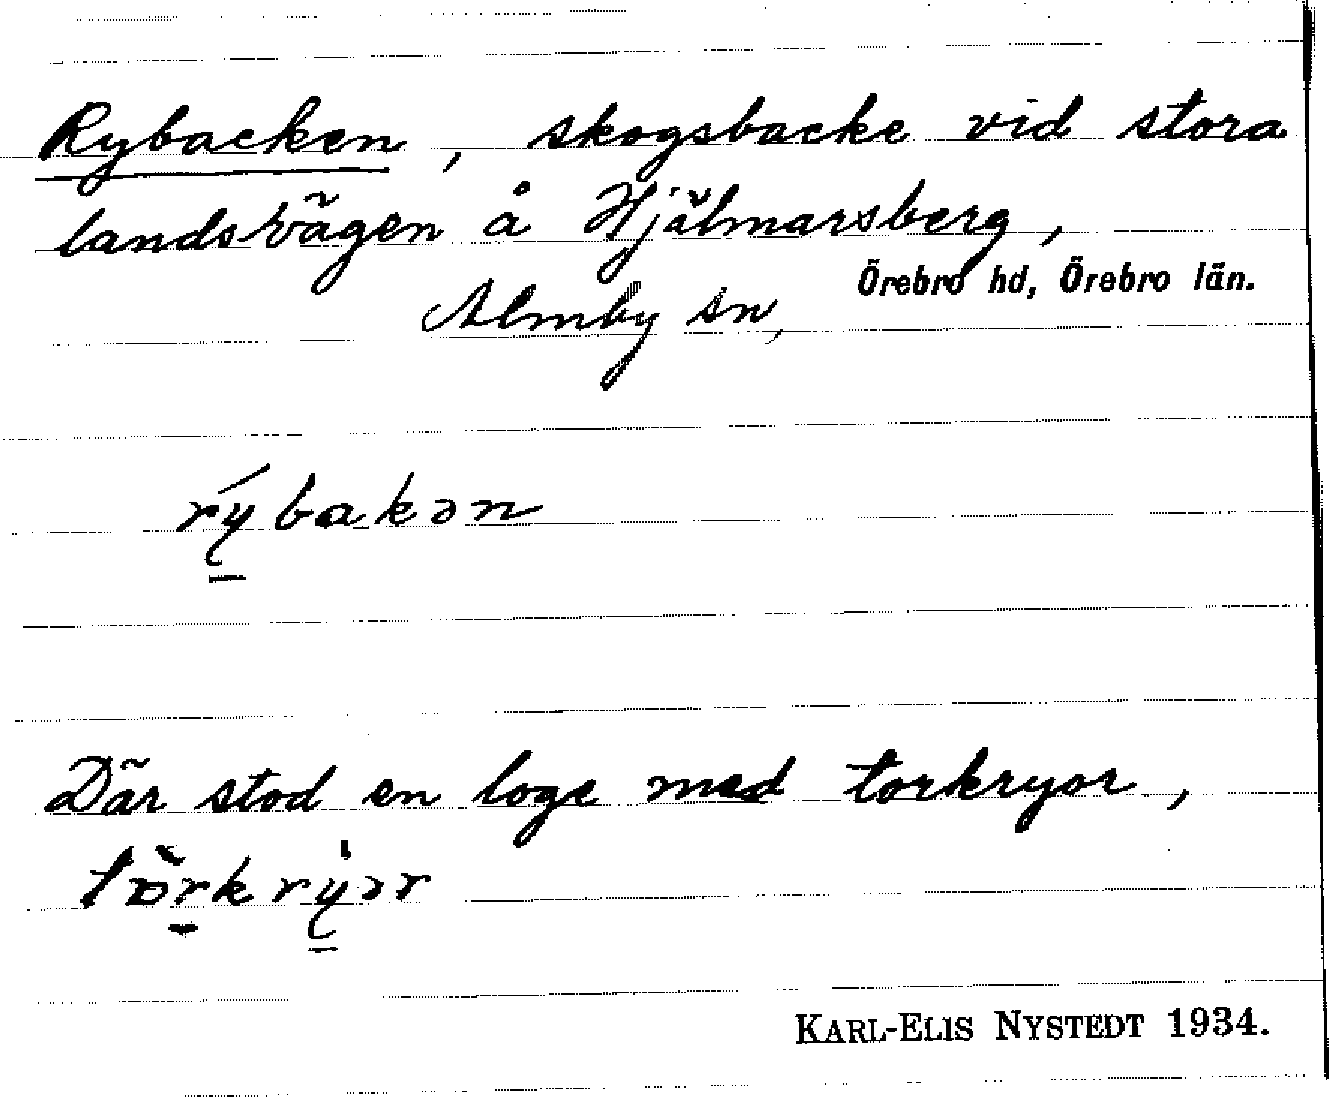 Rybacken, skogsbacke vid stora
landsvägen å Hjälmarsberg,
Almby sn, Örebro hd, Örebro län.
rýbakən
Där stod en loge med torkryor,
tòrkrỳər
KARL-ELIS NYSTEDT 1934.